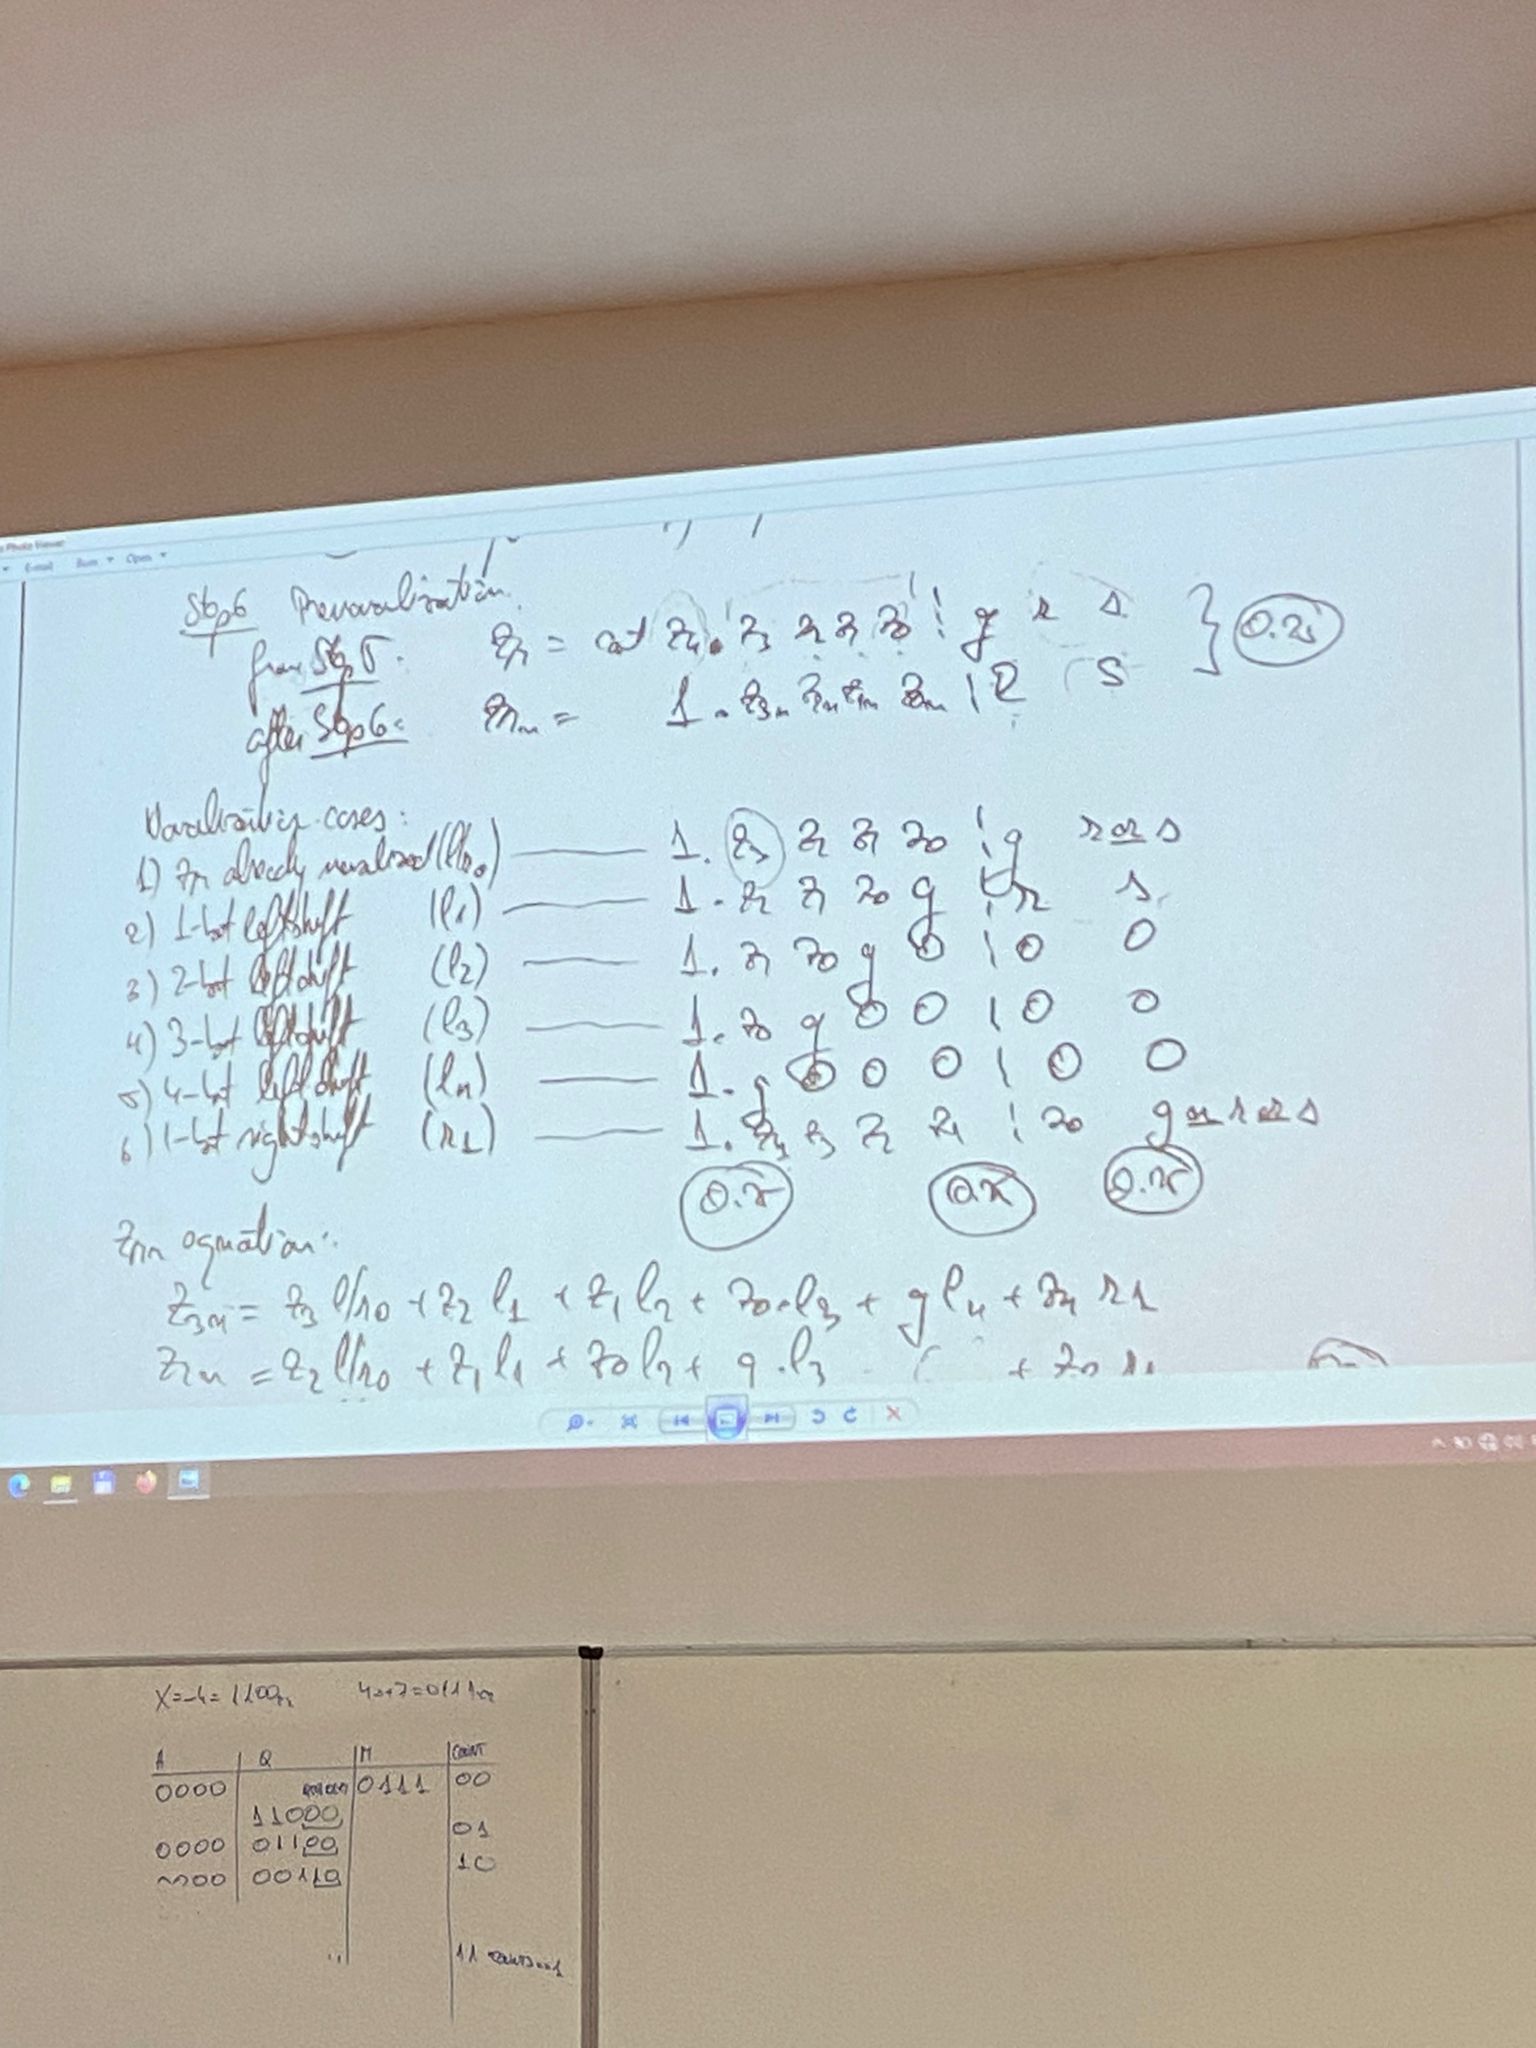 Photo Viewer
E-mail Burn Open
Step 6 Renormalization
from Step 5: zm = cout z4 . z3 z2 z1 z0 ¦ g r s } 0.25
after Step 6: zmn = 1 . z3n z2n z1n z0n | R S
Normalization cases:
1) zm already normalized (l/r0) — 1. z3 z2 z1 z0 ¦ g r or s
2) 1-bit left shift (l1) — 1. z2 z1 z0 g ¦ r s
3) 2-bit left shift (l2) — 1. z1 z0 g 0 | 0 0
4) 3-bit left shift (l3) — 1. z0 g 0 0 | 0 0
5) 4-bit left shift (l4) — 1. g 0 0 0 | 0 0
6) 1-bit right shift (r1) — 1. z4 z3 z2 z1 ¦ z0 g or r or s
0.25 0.25 0.25
zmn equation:
z3n = z3 l/r0 + z2 l1 + z1 l2 + z0 · l3 + g l4 + z4 r1
z2n = z2 l/r0 + z1 l1 + z0 l2 + g · l3
X=-4=1100
A | Q | M | COUNT
0000 0111 00
11000
0000 01100 01
00110 10
11